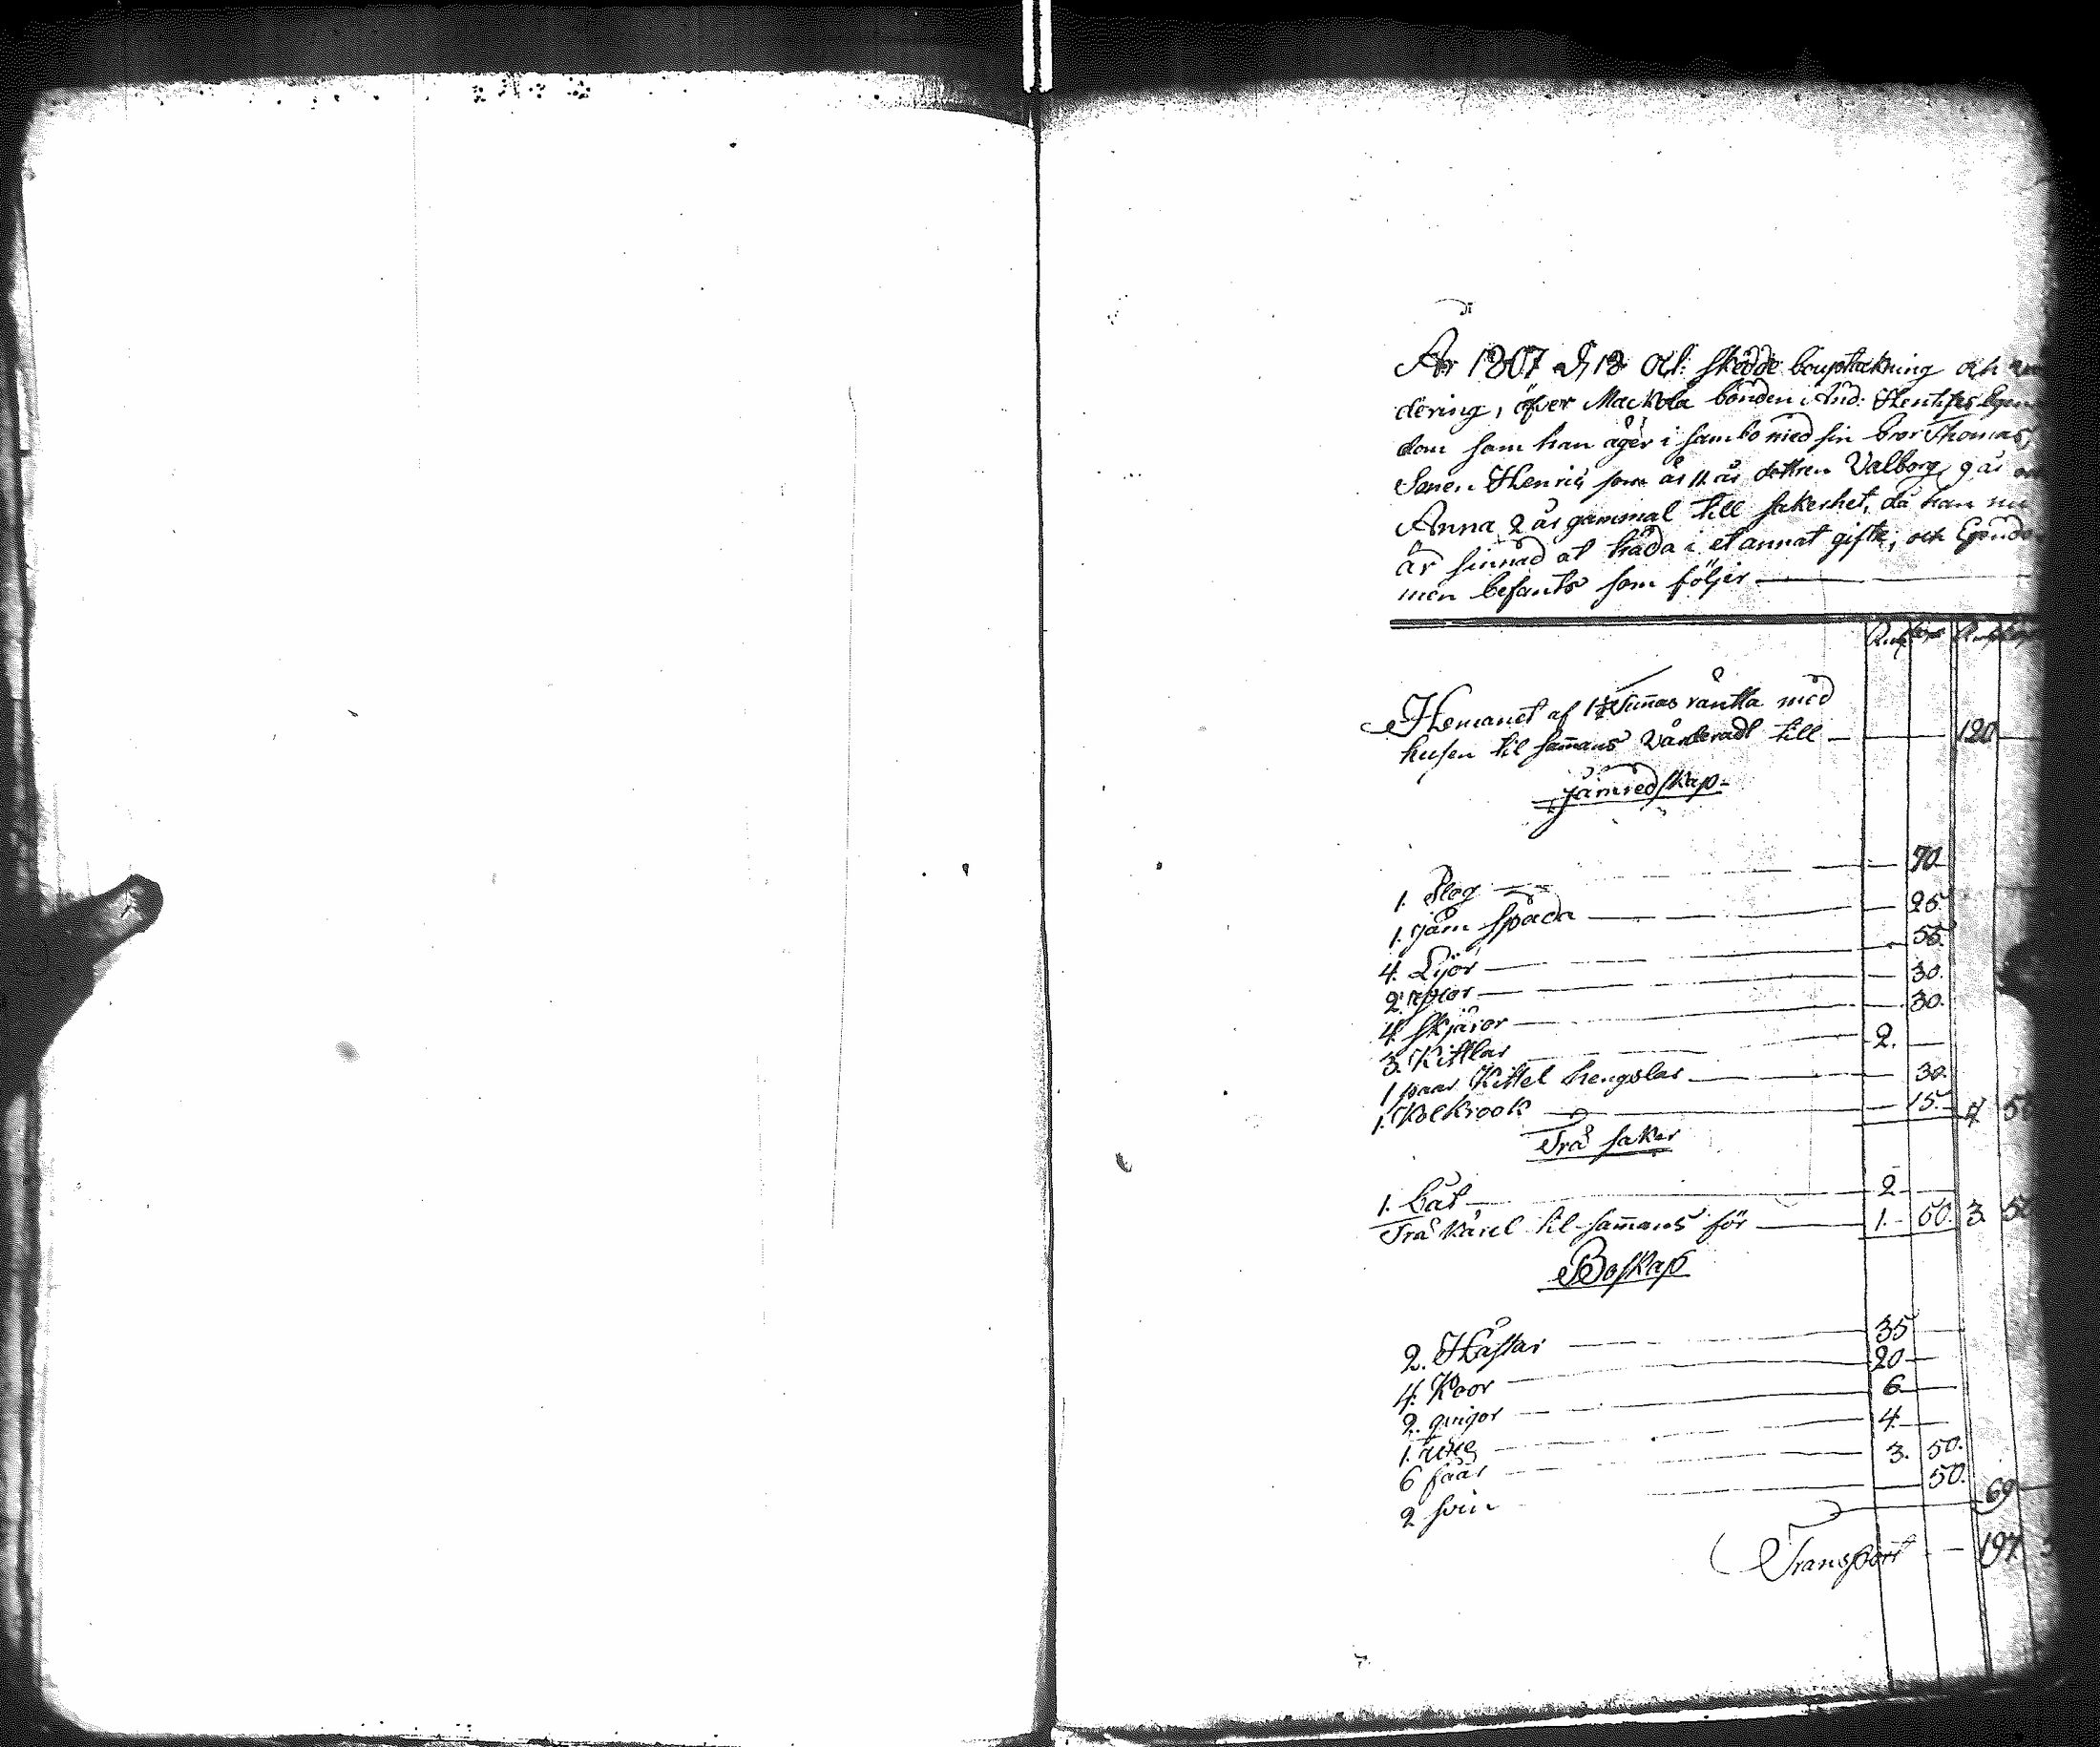 År 1807 d 18 Oct: skedde bouptekning och
dering, öfver Mackola bonden And:
dom som han äger i sambo med sin bror Thomas,
Sonen Henric som är 11 år dottren Valborg 9 år
Anna 2 år gammal till sakerhet, då han nu
är sinnad at träda i et annat gifte, och Egendo
men befants som följer —
Rub kop Rub
Hemanet af räntta med
husen til samans Värderadt till — 120
Järnredskap
1. Plog — 70.
1. järn Spada — 25
4. Lijor — 55.
2. — 30.
4. Skjäror — 30.
3. Kittlar — 2. —
1 paar Kittel hengslar — 30.
1. Kolkrook — 15. 4 5
Trä saker
1. Båt — 2 —
Trä Kärel til samans för — 1. 50. 3. 50
Boskap
2. Hästar — 35 —
4. Koor — 20 —
2. qvigor — 6 —
1. — 4 —
6 fåår — 3. 50.
2 svin — 50. 69 —
Transport — 197.